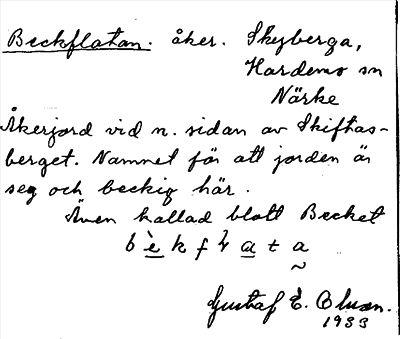 Beckflatan. åker. Skyberga,
Hardemo sn
Närke
Åkerjord vid n. sidan av Skiftas-
berget. Namnet för att jorden är
seg och beckig här.
Även kallad blott Becket
b è k f ł a t a
Gustaf E. Bluxn.
1933